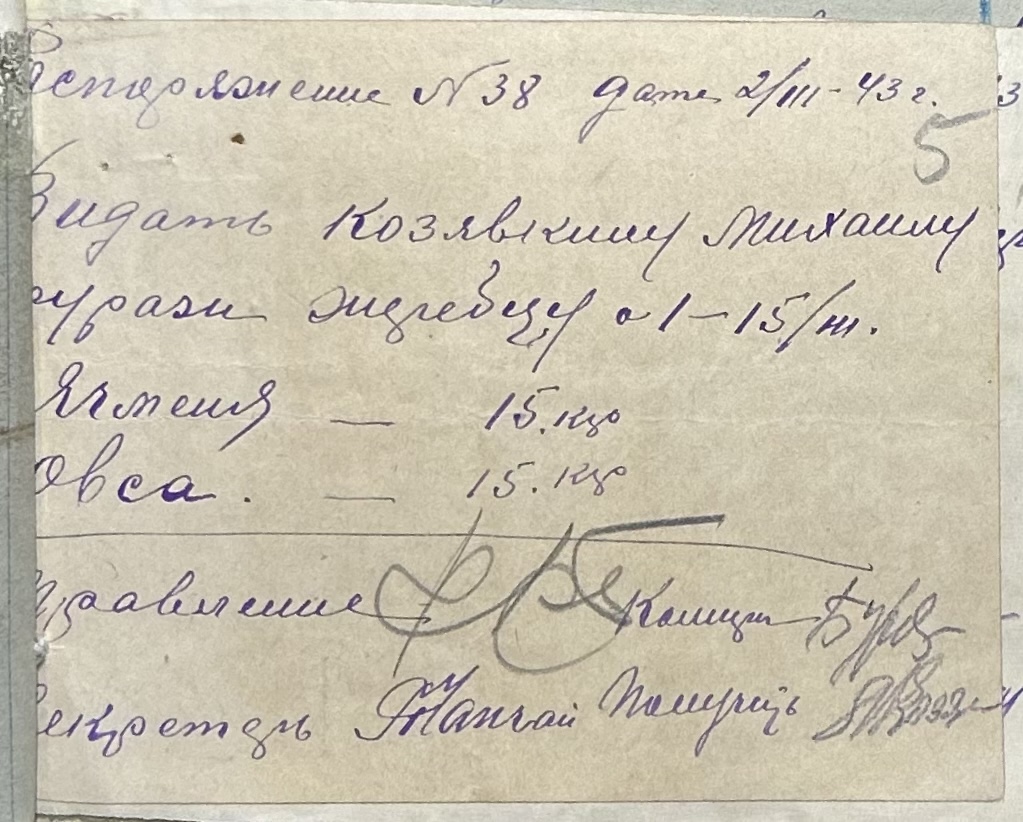 Распоряжение №38 дате 2/III-43 г.
5
Видать Козявкину Михаилу
фуражи жеребцу с 1-15/III.
Ячменя — 15. кго
Овса. — 15. кго
Правление
Секретарь Получіць